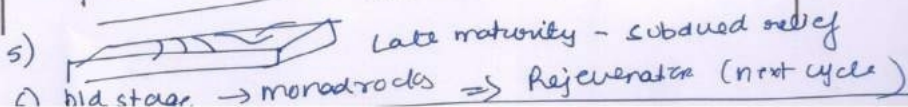 5) Late maturity - subdued relief
6) old stage → monadrocks ⇒ Rejeuveration (next cycle)